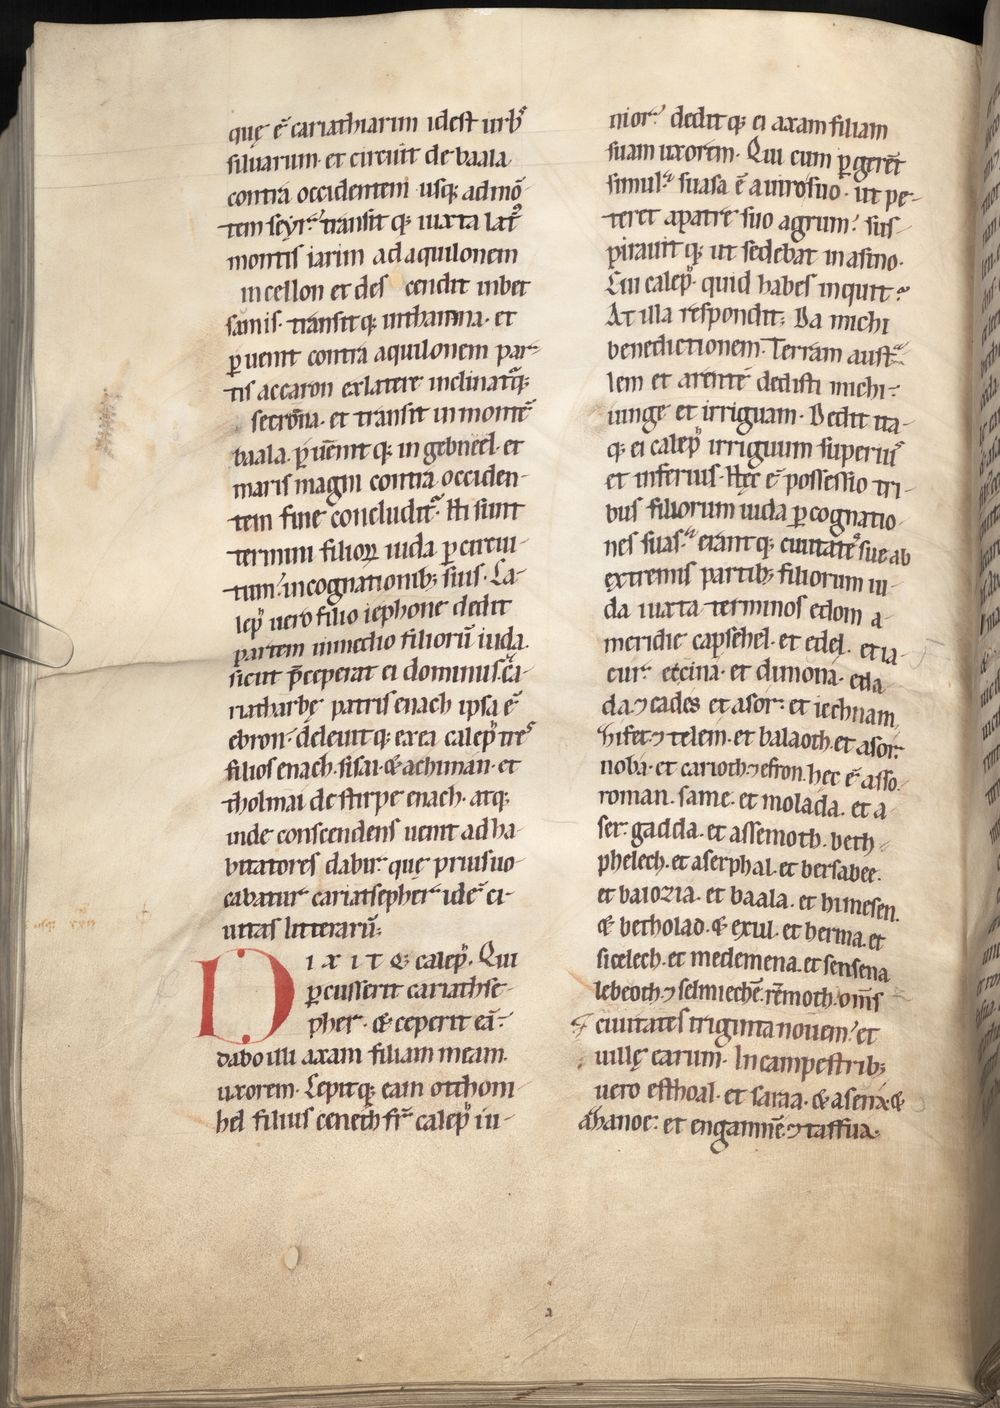 quę ē cariathiarim idest urbˢ
siluarum· et circuit de baala
contra occidentem usq; ad mō-
tem seyr· transit q; iuxta latˢ
montis iarim ad aquilonem
in cellon et des cendit in bet
samis· transit q; in thamna· et
ꝑuenit contra aquilonem par-
tis accaron ex latere inclinatq̄;
secrona· et transit in montē
baala· ꝑuēnit q; in gebneel· et
maris magni contra occiden-
tem fine concludit᷑· Hi sunt
termini filioꝝ iuda ꝑ circui-
tum· in cognationib; suis· Ca-
lep̄ uero filio iephone dedit
partem in medio filiorū iuda
sicut p̄ceperat ei dominus· ca-
riatharbę patris enach ipsa ē
ebron· deleuit q; ex ea calep̄ tres
filios enach· sisai· & achiman· et
tholmai de stirpe enach· atq;
inde conscendens uenit ad ha-
bitatores dabir· quę prius uo-
cabatur cariatsepher idē ci-
uitas litterarū;
DIXIT Q; calep̄· Qui
ꝑcusserit cariathse-
pher· & ceperit eā·
dabo illi axam filiam meam
uxorem· Cepit q; eam othoni-
hel filius cenech fr̄ calep̄ iu-
nior· dedit q; ei axam filiam
suam uxorem· Qui cum ꝑgerēt
simul· suasa ē a uiro suo· ut pe-
teret a patre suo agrum· sus-
pirauit q; ut sedebat in asino·
Cui calep̄· quid habes inquit?
At illa respondit; Da michi
benedictionem· Terram austᵃ-
lem et arentē dedisti michi·
iunge et irriguam· Dedit ita-
q; ei calep̄ irriguum superiuˢ
et inferius· Hęc ē possessio tri-
bus filiorum iuda ꝑ cognatio-
nes suas· erant q; ciuitates sue ab
extremis partib; filiorum iu-
da iuxta terminos edom a
meridie capsehel· et edel· et ia-
eur· et cina· et dimona· eda
da ⁊ cades et asor· et iechnam
hifet ⁊ telem· et balaoth· et asor·
noba· et carioth ⁊ efron· hec ē asso-
roman· same· et molada· et a-
ser· gadda· et assemoth· beth-
phelech· et aserphal· et bersabee·
et baiozia· et baala· et himesen·
& betholad· & exiul· et herma· et
sicelech· et medemena· et sensena
lebeoth ⁊ selmiechē· rēmoth· om̄s
ciuitates triginta nouem· et
uillę earum· In campestrib;
uero esthoal· et saraa· & asena· &
ahanoe· et engannē ⁊ taffua·